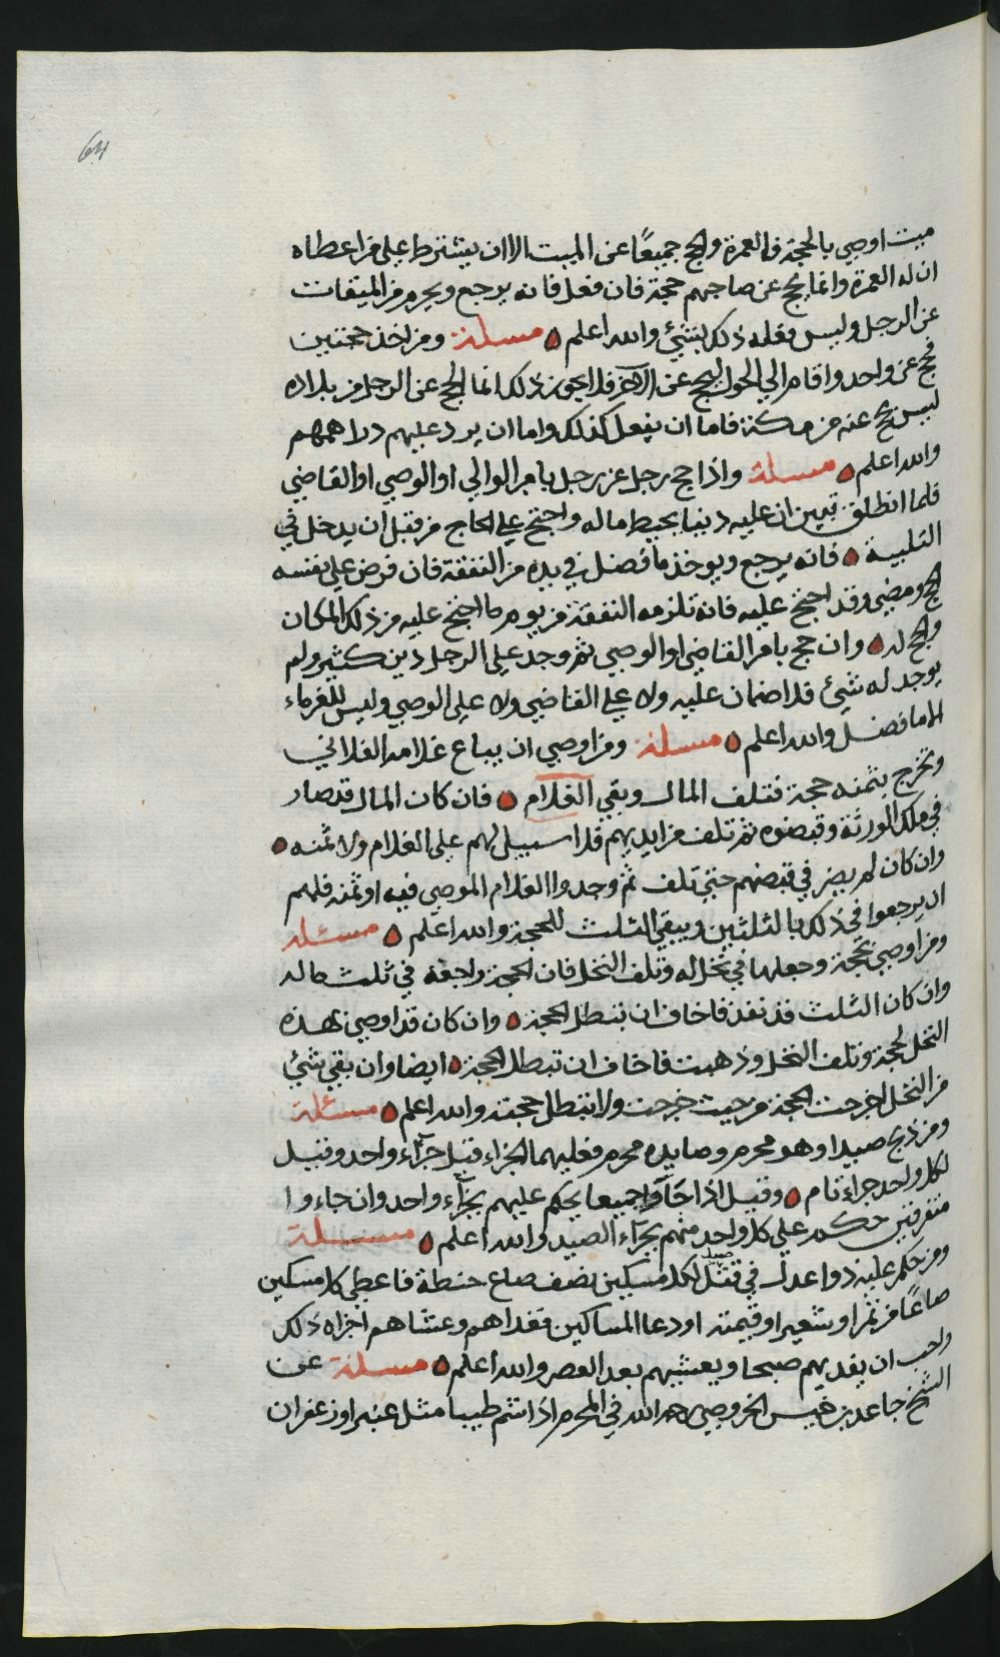 64
ميت اوصي بالحجة فالعمرة والحج جميعًا عن الميت الا ان يشترط علي من اعطاه
ان له العمرة وانما يحج عن صاحبهم حجة فان فعل فانه يرجع ويحرم من الميقات
عن الرجل وليس فعله ذلك بشيئ والله اعلم مسلة ومن اخذ حجتين
فحج عن واحد واقام الي الحول ليحج عن الآخر فلا يجوز ذلك انما الحج عن الرجل من بلاده
ليس يحج عنه من مكة فاما ان يفعل كذلك واما ان يرد عليهم دراهمهم
والله اعلم مسلة واذا حج رجل عن رجل بامر الوالي او الوصي او القاضي
فلما انطلق تبين ان عليه دينا يحيط ماله واحتج علي الحاج من قبل ان يدخل في
التلبية فانه يرجع ويوخذ ما فضل في يده من النفقة فان فرض علي نفسه
الحج ومضي وقد احتج عليه فانه تلزمه النفقة من يوم ما احتج عليه من ذلك المكان
والحج له وان حج بامر القاضي او الوصي ثم وجد علي الرجل دين كثير ولم
يوجد له شيئ فلا ضمان عليه ولا علي القاضي ولا علي الوصي وليس للغرماء
الا ما فضل والله اعلم مسلة ومن اوصي ان يباع غلامه الفلاني
وتخرج بثمنه حجة فتلف المال وبقي الغلام فان كان المال قد صار
في ملك الورثة وقبضوه ثم تلف من ايديهم فلا سبيل لهم علي الغلام ولا ثمنه
وان كان لم يصر في قبضهم حتي تلف ثم وجدوا الغلام الموصي فيه او ثمنه فلهم
ان يرجعوا في ذلك بالثلثين ويبقي الثلث للحجة والله اعلم مسئله
ومن اوصي بحجة وجعلها في نخل له وتلف النخل فان الحجة راجعة في ثلث ماله
وان كان الثلث قد نفذ فاخاف ان تبطل الحجة وان كان قد اوصي بهذه
النخل لحجة وتلف النخل وذهبت فاخاف ان تبطل الحجة ايضا وان بقي شيئ
من النخل اخرجت الحجة من حيث خرجت ولا تبطل حجته والله اعلم مسئلة
ومن ذبح صيدا وهو محرم وصايده محرم فعليهما الجزاء قيل جزآء واحد وقيل
لكل واحد جزاء تام وقيل اذا جآؤا جميعا يحكم عليهم بجزآء واحد وان جاءوا
متفرقين حكم علي كل واحد منهم بجزآء الصيد والله اعلم مسئلة
ومن حكم عليه ذوا عدل في قتل صيد لكل مسكين نصف صاع حنطة فاعطي كل مسكين
صاعًا من تمر او شعير او قيمته او دعا المساكين فغداهم وعشاهم اجزاه ذلك
واحب ان يغديهم صبحا ويعشيهم بعد العصر والله اعلم مسلة عن
الشيخ جاعد بن خميس الخروصي رحمه الله في المحرم اذا شم طيبا مثل عنبر او زعفران